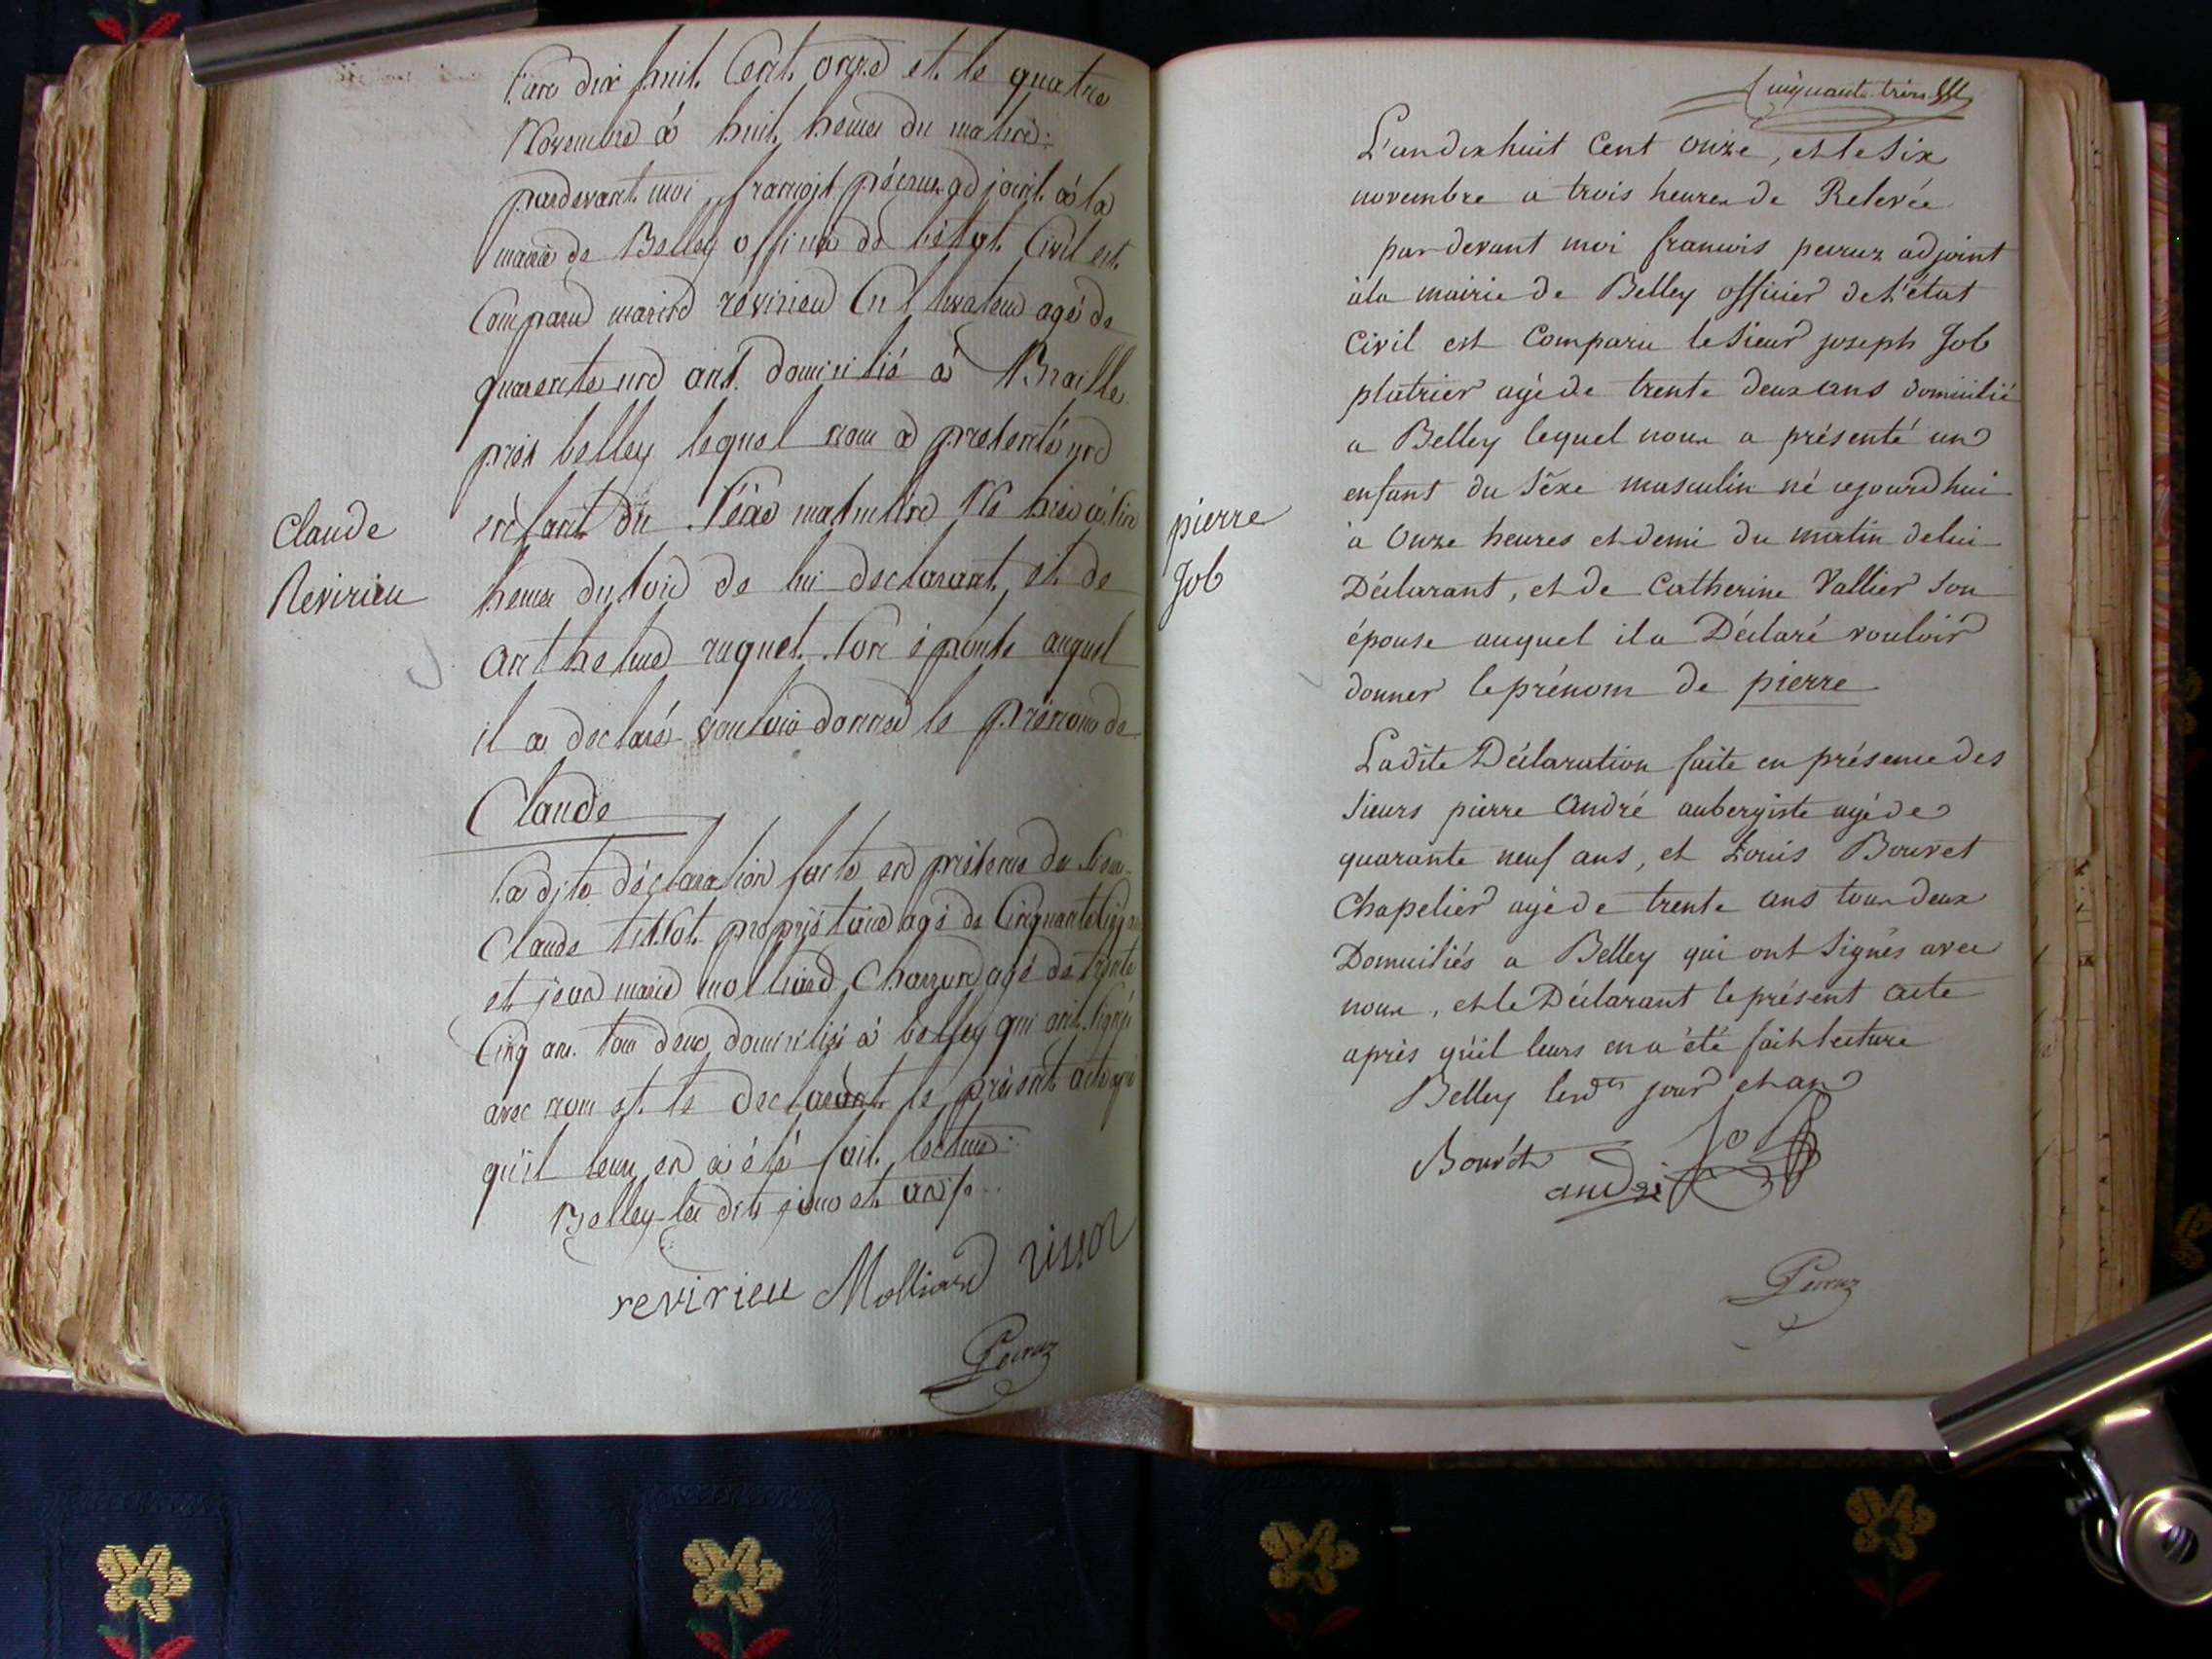 L'an dix huit Cent onze et le quatre
Novembre à huit heures du matin
pardevant moi françois péiruz adjoint à la
mairie de Belley officier de l'état Civil est
Comparu marin revirieu Cultivateur agé de
quarente un ans domicilié à Brailles
près belley lequel nous a présenté un
enfant du sèxe masculin Né hier à six
heures du soir de lui declarant, et de
anthelme ruquet son épouse auquel
il a declaré vouloir donner le prénom de
Claude
Claude
Revirieu
la dite déclaration faite en présence du sieur
Claude propriétaire agé de Cinquante
et jean marie molliard Charron agé de trente
Cinq ans tous deux domiciliés à belley qui ont signés
avec nous et le declarant le présent acte après
qu'il leurs en a été fait lecture
Belley les dits jour et an
revirieu Molliard
Peiruz
Cinquante trois
L'an dix huit Cent onze, et le six
novembre a trois heures de Relevée
par devant moi francois peiruz adjoint
à la mairie de Belley officier de l'état
Civil est Comparu le sieur joseph Job
platrier agé de trente deux ans domicilié
a Belley lequel nous a présenté un
enfant du séxe masculin né cejourd'hui
à Onze heures et demi du matin de lui
Déclarant, et de Catherine Vallier son
épouse auquel il a Déclaré vouloir
donner le prénom de pierre
pierre
Job
Ladite Déclaration faite en présence des
sieurs pierre André aubergiste agé de
quarante neuf ans, et Louis Bouvet
Chapelier agé de trente ans tous deux
Domiciliés a Belley qui ont signés avec
nous, et le Déclarant le présent acte
après qu'il leurs en a été fait lecture
Belley lesd<sup>ts</sup> jour et an
Bouvet
andré Job
Peiruz